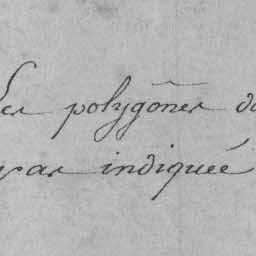 Les polygônes do
par indiquée